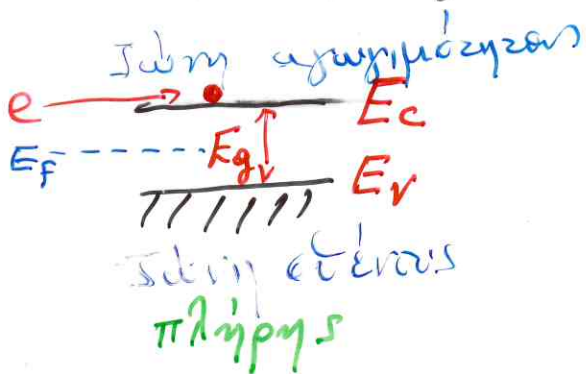 Ζώνη αγωγιμότητος
e Ec
Ef Eg
Ev
Ζώνη σθένους
πλήρης